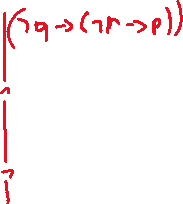 (¬q→(¬r→p))